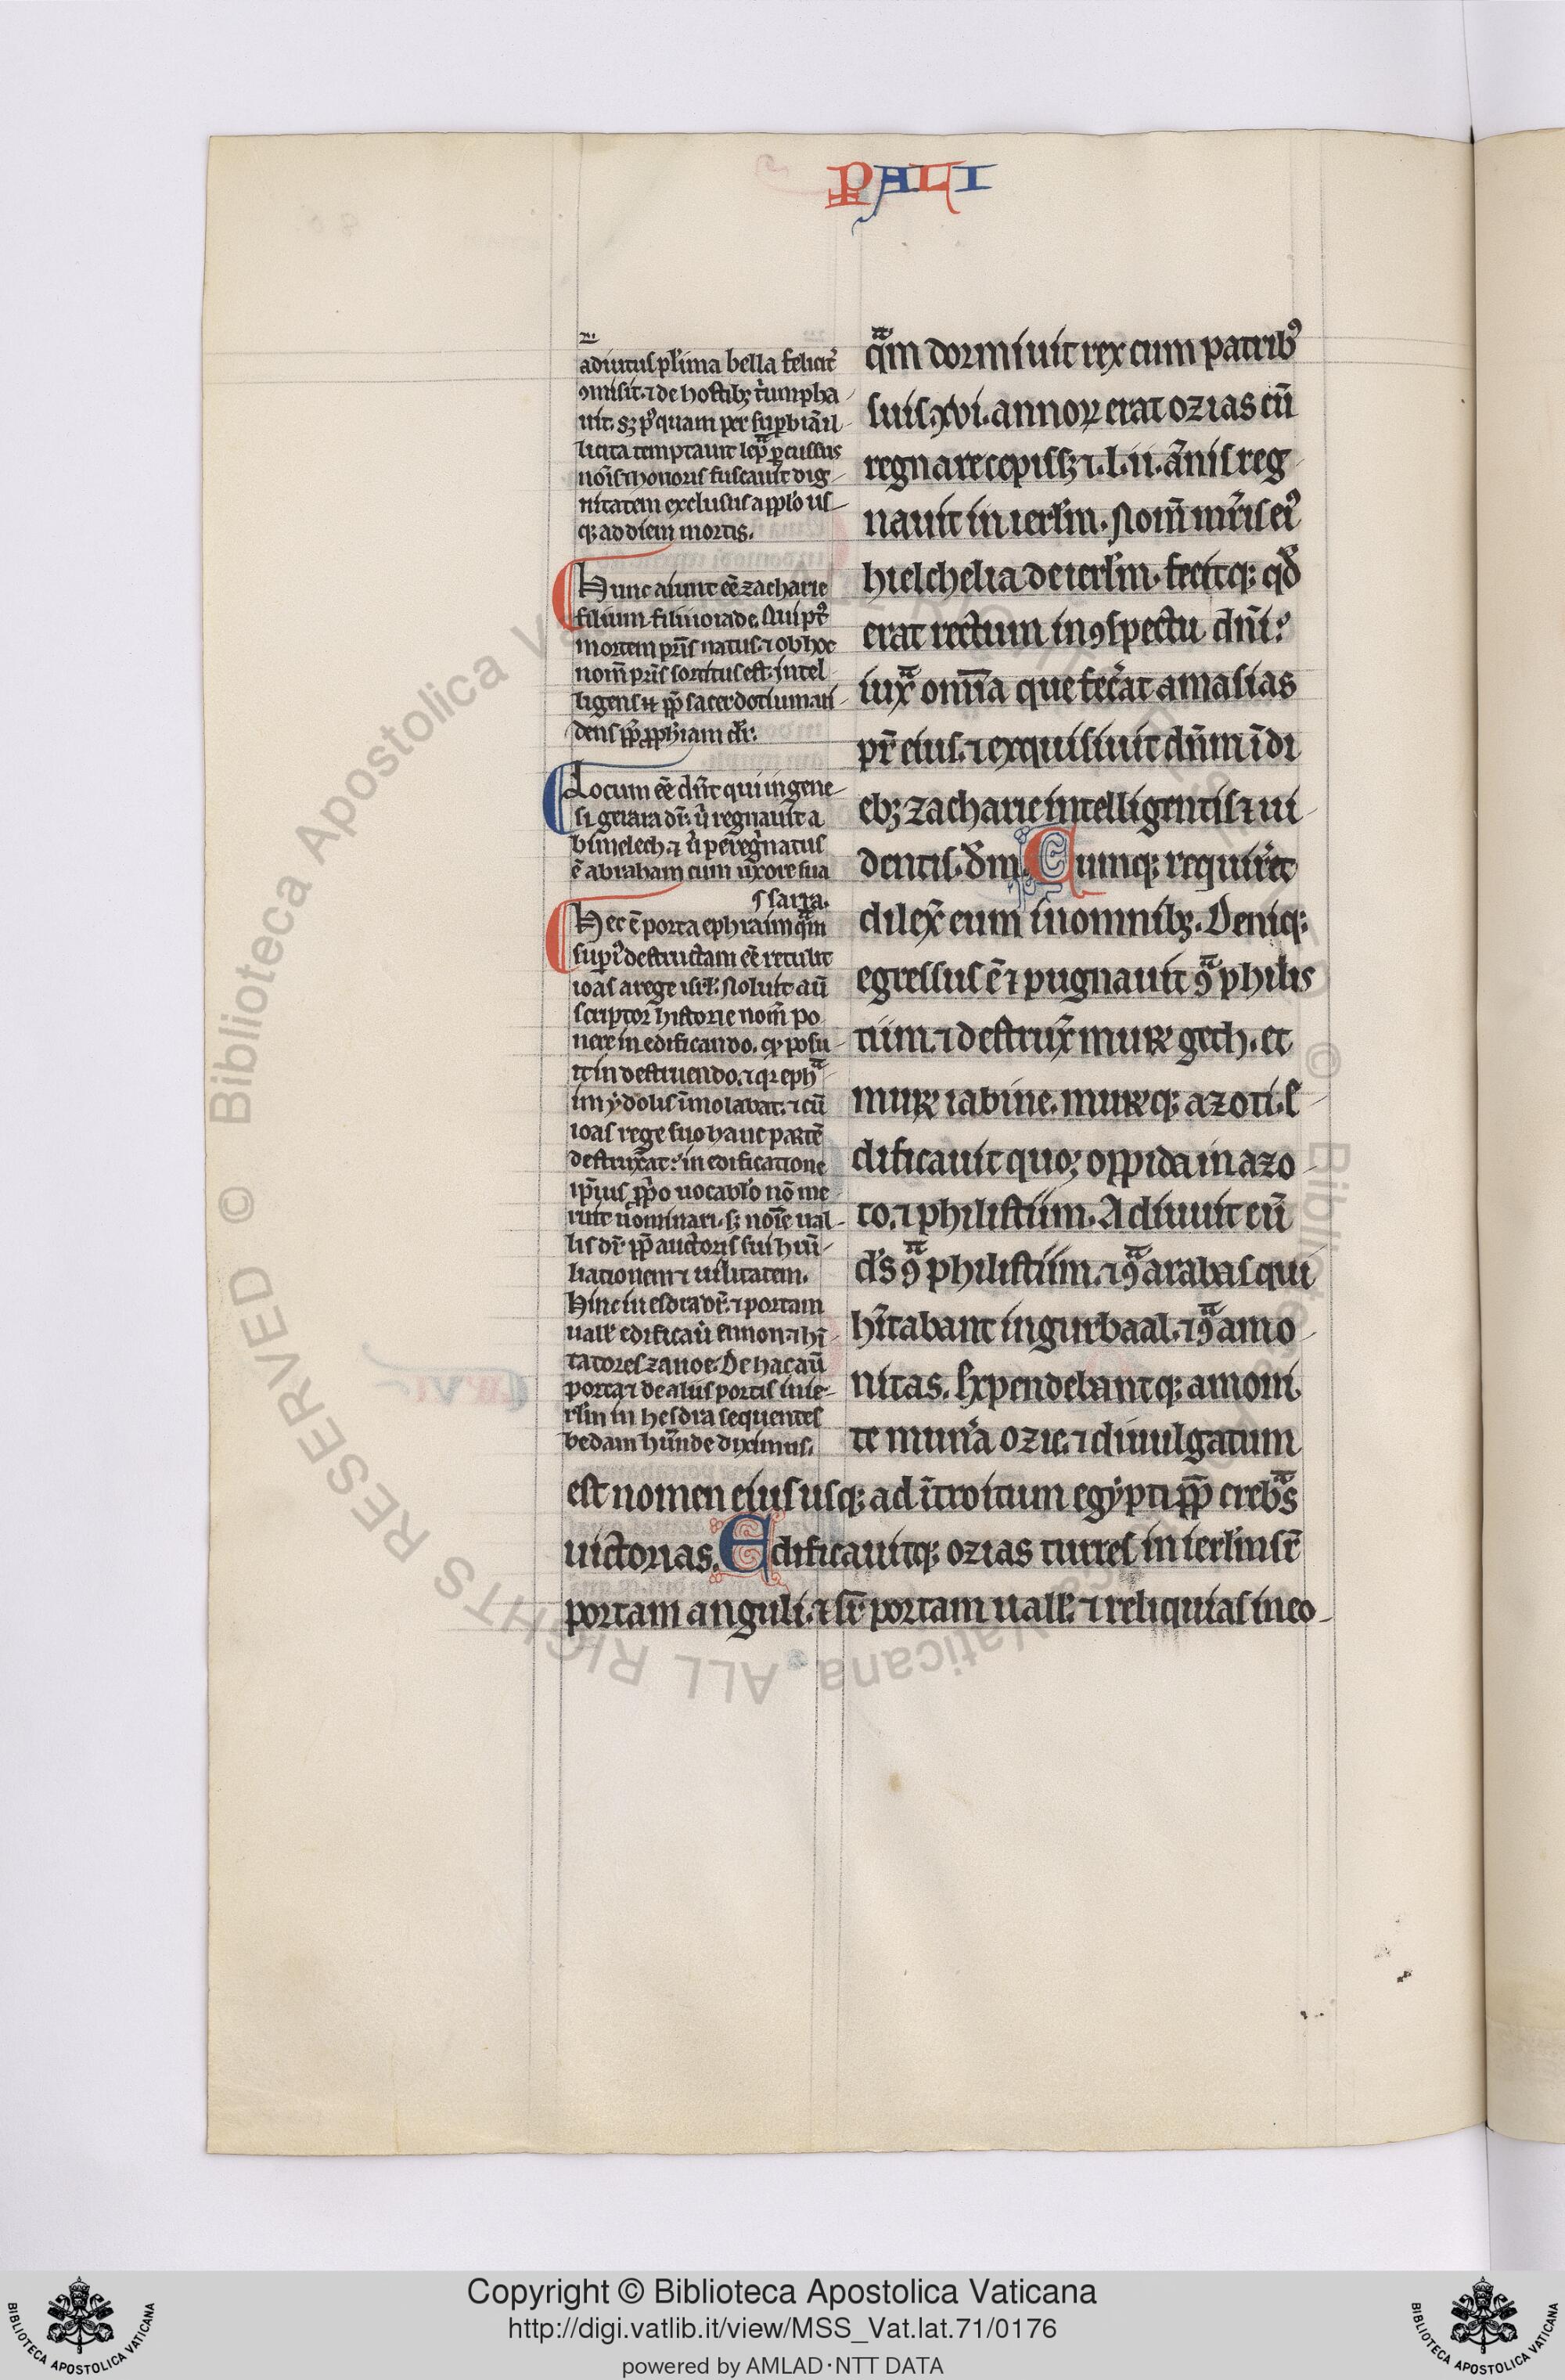 PALI
adiutus pl'ima bella felicit᷑
ꝯmisit. ⁊ de hostib; t'umpha
uit. s; pꝰquam per suꝑbiā il
licita temptauit lepᵃ ꝑcussus
nois̄ ⁊ honoris fuscauit dig
nitatem exclusus a pplo us
q; ad diem mortis.
Hunc aiunt eē zacharie
filium filii ioiade. Qui pꝰ
mortem pris̄ natus. ⁊ ob hoc
nom̄ pris̄ sortitus est. intel
ligens
dens
Locum eē dn̄t qui in gene
si gerara dr̄. u' regnauit a
bimelech. ⁊ u' peregͥnatus
ē abraham cum uxore sua
sarra.
Hec ē porta ephraim qᵃm
supͥ destructam eē retulit
ioas a rege isrl'. Noluit au̅
scriptor historie nom̄ po
nere in edificando. qd posu
it in destruendo. ⁊ qr ephᵃ
im ydolis īmolabat. ⁊ cū
ioas rege suo hanc partē
destruxᵃt: in edificatione
ip̄ius pp̄o uocab'lo nō me
ruit nominari. s; noīe ual
lis dr̄ pp̄ auctoris sui hūi
liationem ⁊ uilitatem.
Hinc in esdra dr̄. ⁊ portam
uall' edificau' hanon. ⁊ hī
tatores zanoe. De hac au̅
porta ⁊ de aliis portis in ie
rl'm in hesdra sequentes
bedam habunde diximus.
qᵃm dormiuit rex cum patribꝰ
suis. xvi. annoꝝ erat ozias cū
regnare cepiss; ⁊. l. ii. ān̄is reg
nauit in ierl'm. Nom̄ mr̄is eiꝰ
hielchelia de ierl'm. fecitq; qd'
erat rectum in ꝯspectu dn̄i:
iuxᵃ om̄ia que fec'at amasias
pr̄ eius. ⁊ exquisiuit dn̄m ī di
eb; zacharie intelligentis ⁊ ui
dentis. d'm. Cumq; requir'et
dilex' eum in omnib;. Deniq;
egressus ē ⁊ pugnauit ꝯᵃ philis
tiim. ⁊ destrux' muꝝ geth. et
muꝝ iabine. muꝝq; azoti. E
dificauit quoq; oppida in azo
to. ⁊ philistiim. Adiuuit eū
d's ꝯᵃ philistiim. ⁊ ꝯᵃ arabas qui
hītabant in gurbaal. ⁊ ꝯᵃ amo
nitas. Expendebantq; amoni
te mun'a ozie. ⁊ diuulgatum
est nomen eius usq; ad ītroitum egypti pp̄ crebᵃs
uictorias. Edificauitq; ozias turres in ierl'm sr̄
portam anguli. ⁊ sr̄ portam uall'. ⁊ reliquias in eo
© Biblioteca Apostolica Vaticana ALL RIGHTS RESERVED
Copyright © Biblioteca Apostolica Vaticana
http://digi.vatlib.it/view/MSS_Vat.lat.71/0176
powered by AMLAD·NTT DATA
BIBLIOTECA APOSTOLICA VATICANA
BIBLIOTECA APOSTOLICA VATICANA